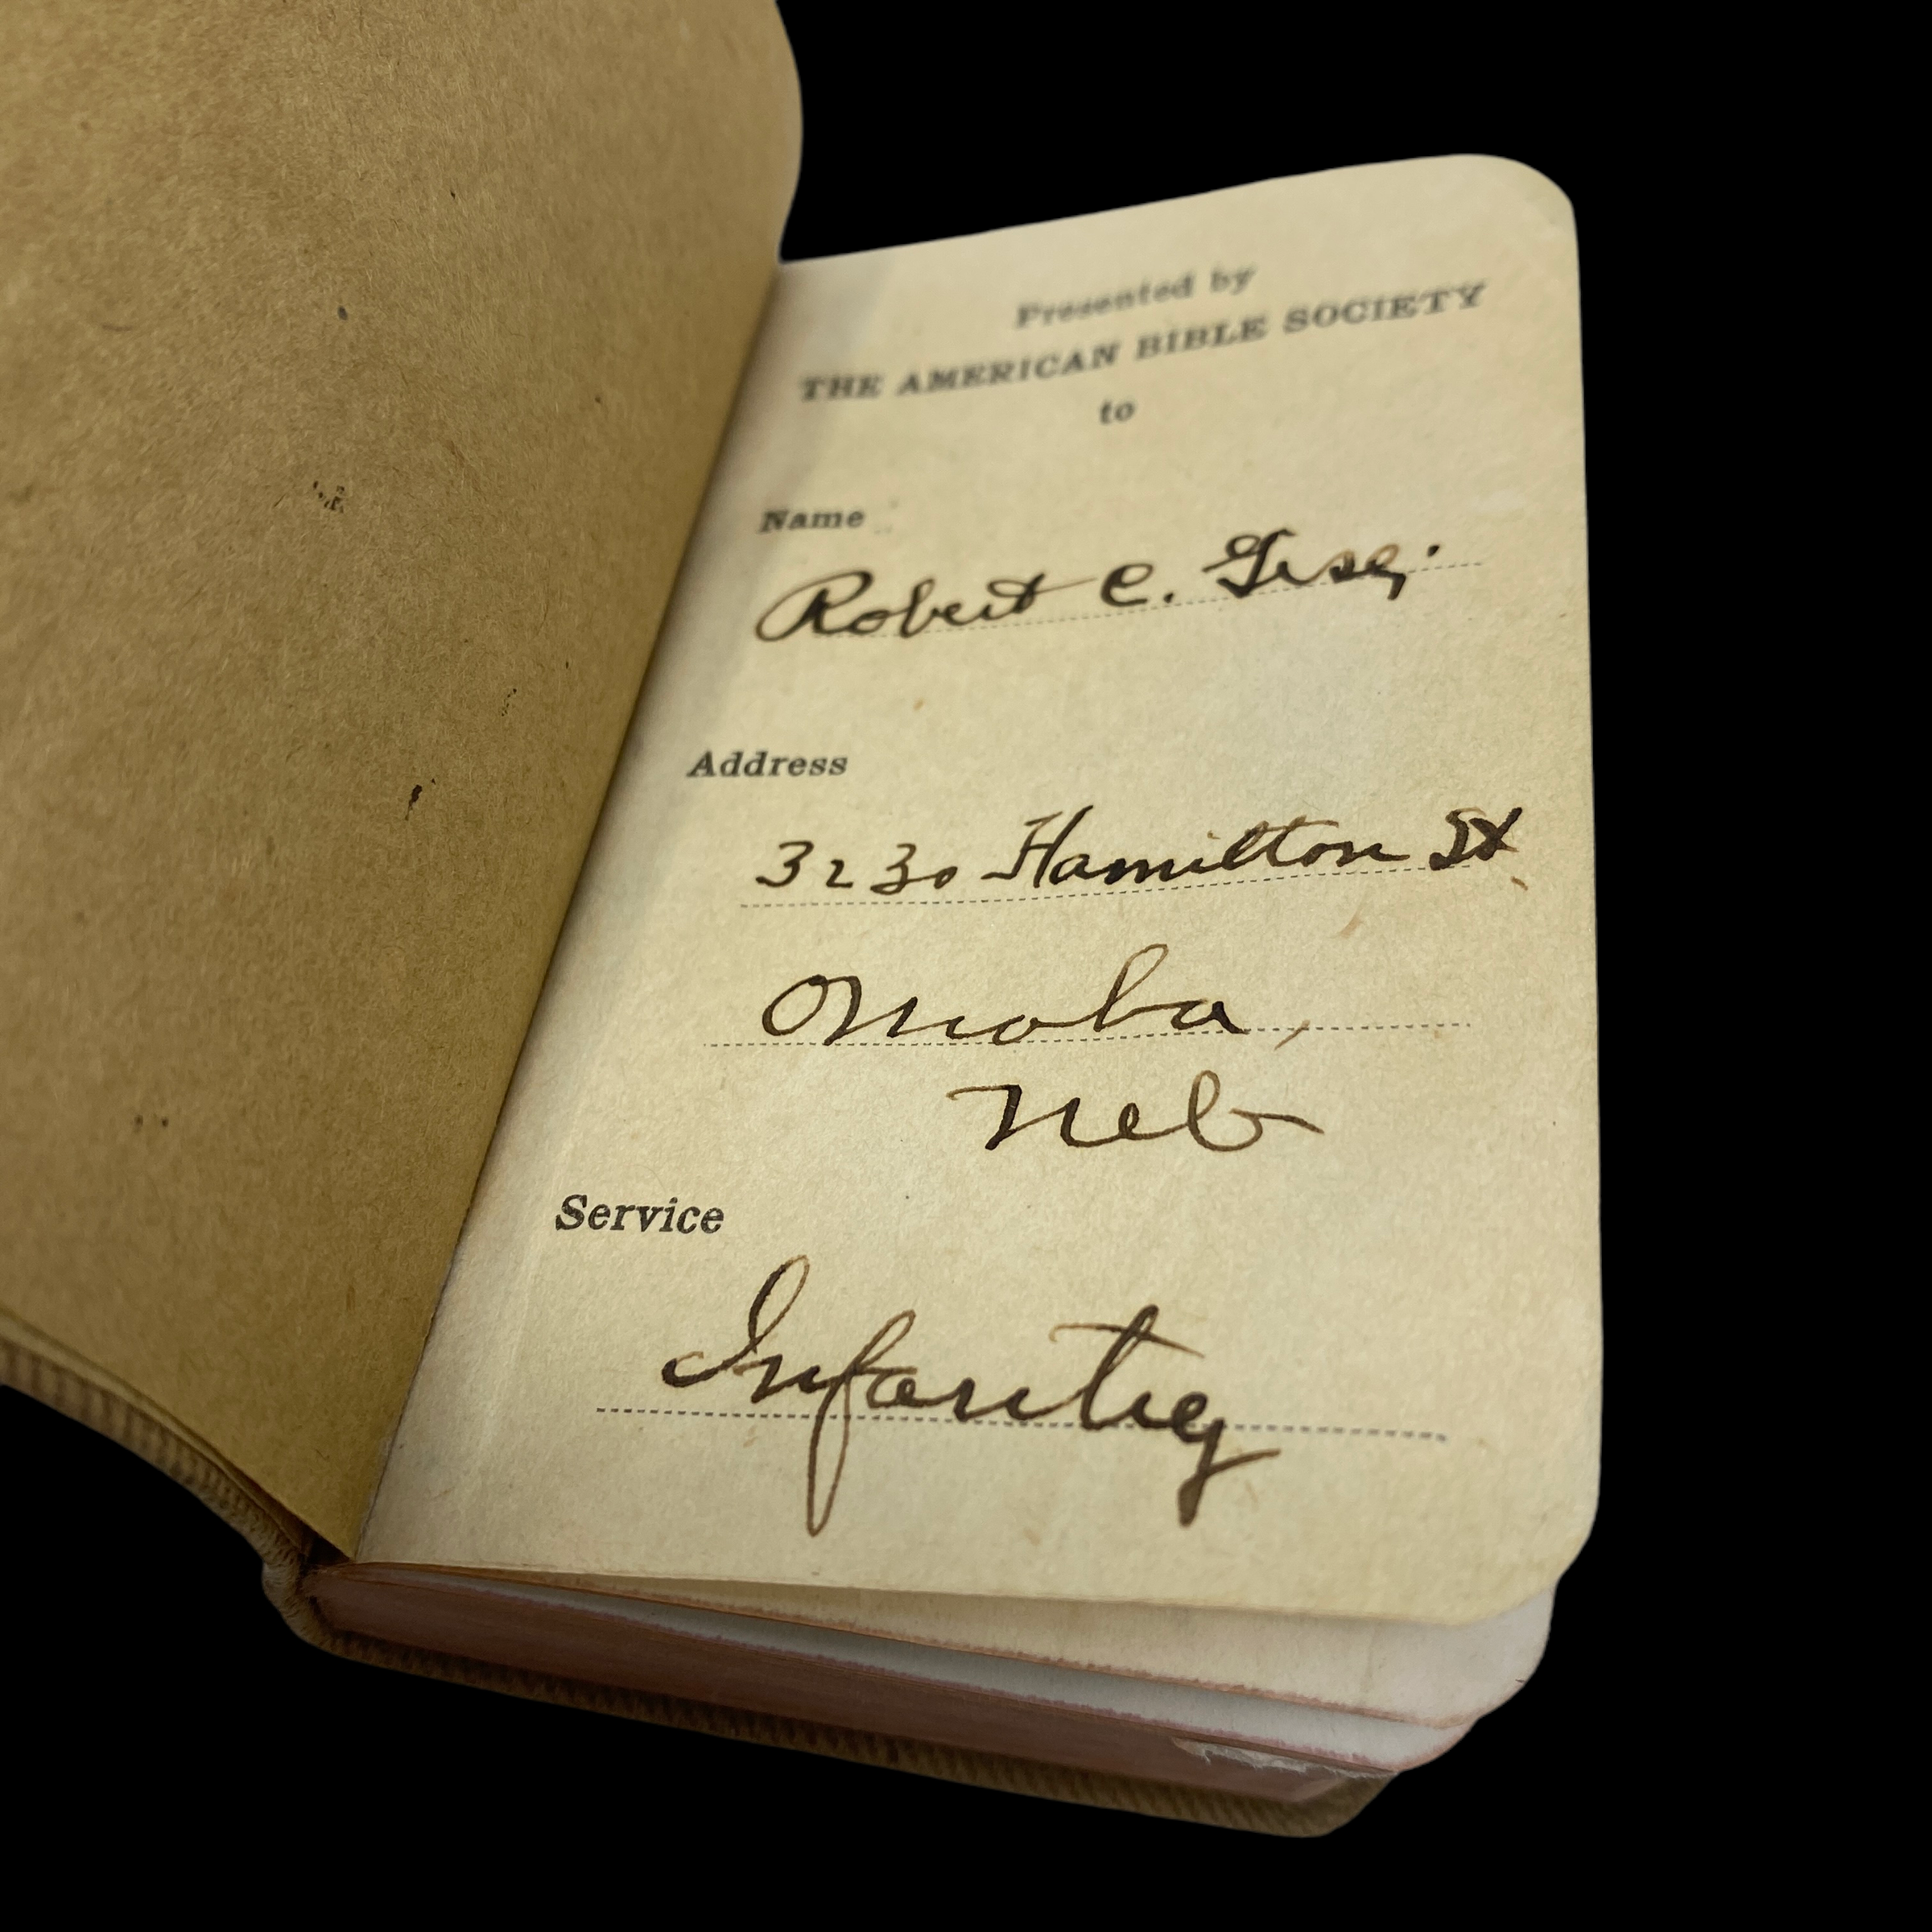 Presented by
THE AMERICAN BIBLE SOCIETY
to
Name
Robert C.
Address
3230 Hamilton St
Omaha,
Neb
Service
Infantry